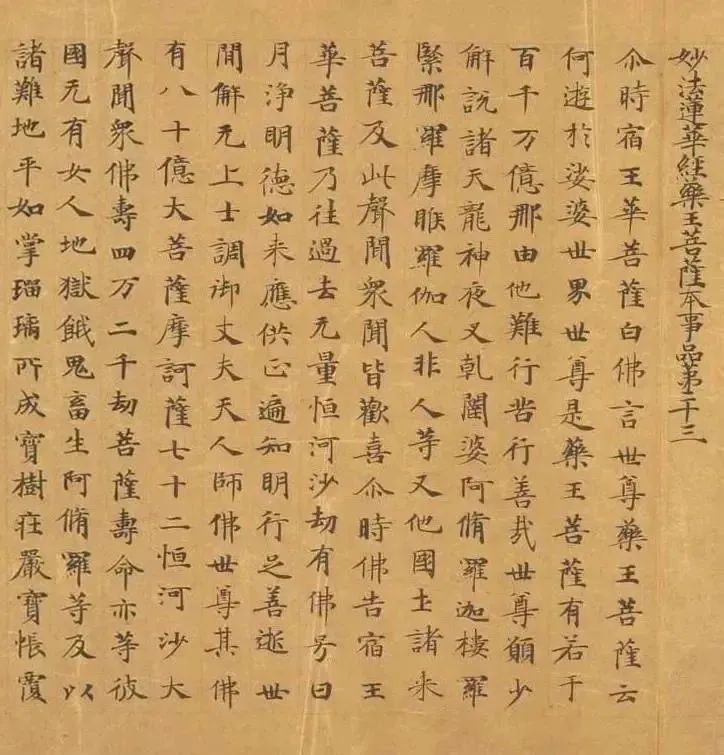 妙法蓮華經藥王菩薩本事品第二十三
尒時宿王華菩薩白佛言世尊藥王菩薩云
何遊於娑婆世界世尊是藥王菩薩有若干
百千万億那由他難行苦行善㦲世尊願少
解說諸天龍神夜叉乹闥婆阿脩羅迦樓羅
緊那羅摩睺羅伽人非人等又他國土諸来
菩薩及此聲聞衆聞皆歡喜尒時佛告宿王
華菩薩乃往過去无量恒河沙劫有佛号曰
月淨明德如来應供正遍知明行足善逝世
間解无上士調御丈夫天人師佛世尊其佛
有八十億大菩薩摩訶薩七十二恒河沙大
聲聞衆佛壽四万二千劫菩薩壽命亦等彼
國无有女人地獄餓鬼畜生阿脩羅等及以
諸難地平如掌瑠璃所成寶樹莊嚴寶帳覆